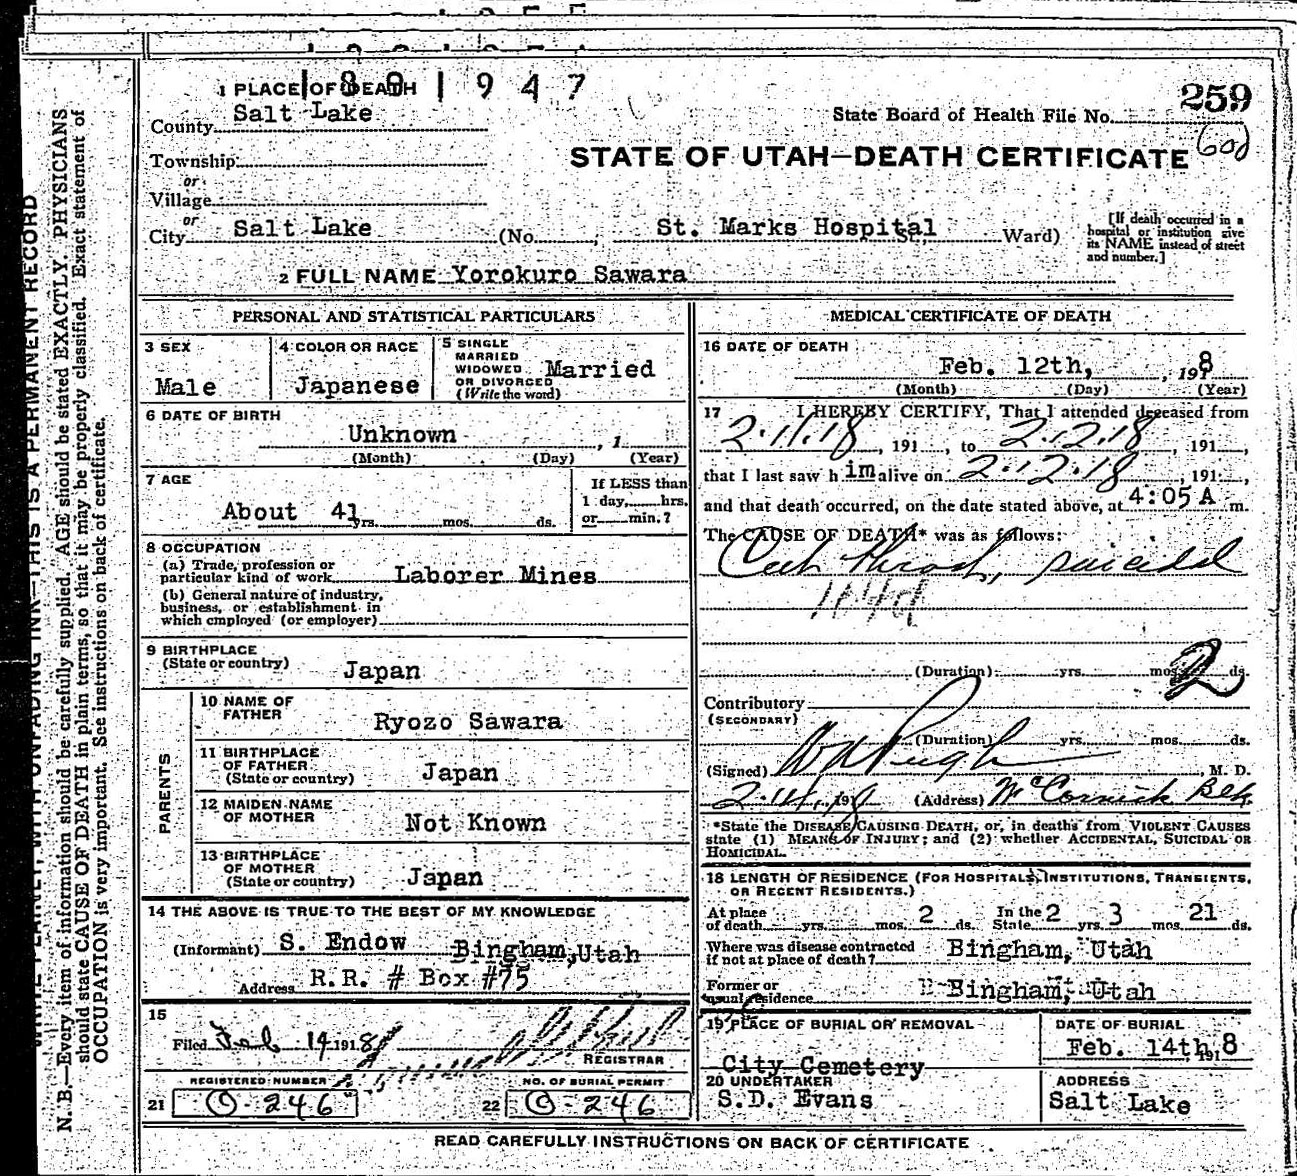 1 PLACE OF DEATH
1801947
259
County Salt Lake
State Board of Health File No.
60d
Township
or
STATE OF UTAH—DEATH CERTIFICATE
Village
or
City Salt Lake (No. , St. Marks Hospital St., Ward)
[If death occurred in a
hospital or institution give
its NAME instead of street
and number.]
2 FULL NAME Yorokuro Sawara
PERSONAL AND STATISTICAL PARTICULARS
3 SEX
Male
4 COLOR OR RACE
Japanese
5 SINGLE
MARRIED
WIDOWED
OR DIVORCED
(Write the word)
Married
6 DATE OF BIRTH
Unknown , 1
(Month) (Day) (Year)
7 AGE
About 41 yrs. mos. ds.
If LESS than
1 day, hrs.
or min.?
8 OCCUPATION
(a) Trade, profession or
particular kind of work Laborer Mines
(b) General nature of industry,
business, or establishment in
which employed (or employer)
9 BIRTHPLACE
(State or country)
Japan
PARENTS
10 NAME OF
FATHER
Ryozo Sawara
11 BIRTHPLACE
OF FATHER
(State or country)
Japan
12 MAIDEN NAME
OF MOTHER
Not Known
13 BIRTHPLACE
OF MOTHER
(State or country)
Japan
14 THE ABOVE IS TRUE TO THE BEST OF MY KNOWLEDGE
(Informant) S. Endow Bingham,Utah
Address R.R. # Box #75
15
Filed Feb 14 1918
REGISTRAR
REGISTERED NUMBER
21 O-246
NO. OF BURIAL PERMIT
22 O-246
MEDICAL CERTIFICATE OF DEATH
16 DATE OF DEATH
Feb. 12th, , 1918
(Month) (Day) (Year)
17 I HEREBY CERTIFY, That I attended deceased from
2.11.18, 191 , to 2.12.18, 191 ,
that I last saw him alive on 2.12.18, 191 ,
and that death occurred, on the date stated above, at 4:05 A m.
The CAUSE OF DEATH* was as follows:
Cut throat, suicidal
(Duration) yrs. mos. 2 ds.
Contributory
(SECONDARY)
(Duration) yrs. mos. ds.
(Signed) Pugh, M. D.
(Address) McCornick Blk.
*State the DISEASE CAUSING DEATH, or, in deaths from VIOLENT CAUSES
state (1) MEANS OF INJURY; and (2) whether ACCIDENTAL, SUICIDAL OR
HOMICIDAL.
18 LENGTH OF RESIDENCE (FOR HOSPITALS, INSTITUTIONS, TRANSIENTS,
OR RECENT RESIDENTS.)
At place
of death yrs. mos. 2 ds. In the
State 2 yrs 3 mos. 21 ds.
Where was disease contracted
if not at place of death? Bingham, Utah
Former or
usual residence Bingham, Utah
19 PLACE OF BURIAL OR REMOVAL
City Cemetery
DATE OF BURIAL
Feb. 14th, 1918
20 UNDERTAKER
S.D. Evans
ADDRESS
Salt Lake
READ CAREFULLY INSTRUCTIONS ON BACK OF CERTIFICATE
WRITE PLAINLY, WITH UNFADING INK—THIS IS A PERMANENT RECORD
N. B.—Every item of information should be carefully supplied. AGE should be stated EXACTLY. PHYSICIANS
should state CAUSE OF DEATH in plain terms, so that it may be properly classified. Exact statement of
OCCUPATION is very important. See instructions on back of certificate.